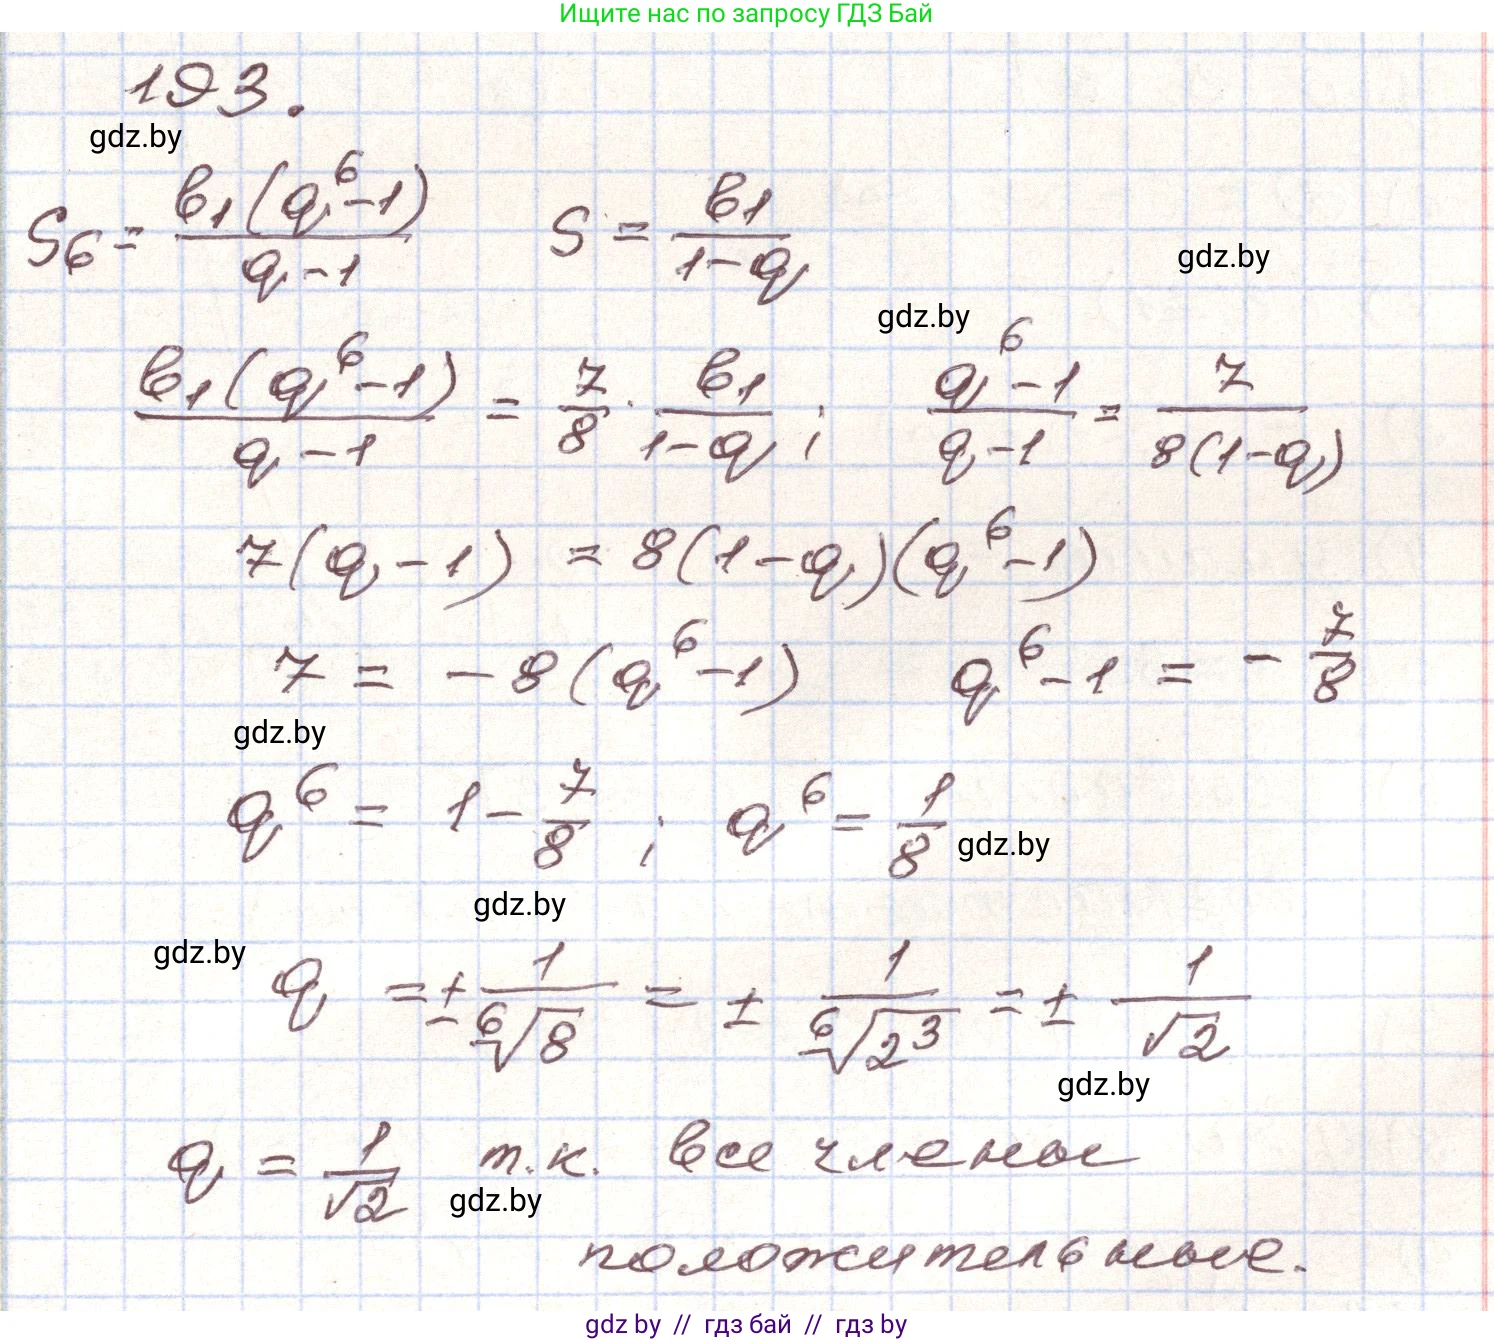 Ищите нас по запросу ГДЗ Бай
193.
gdz.by
S₆ = b₁(q⁶-1)/(q-1)    S = b₁/(1-q)
gdz.by
gdz.by
b₁(q⁶-1)/(q-1) = 7/8 · b₁/(1-q) ;    (q⁶-1)/(q-1) = 7/(8(1-q))
7(q-1) = 8(1-q)(q⁶-1)
7 = -8(q⁶-1)    q⁶-1 = -7/8
gdz.by
q⁶ = 1 - 7/8 ;    q⁶ = 1/8
gdz.by
gdz.by
gdz.by
q = ± 1/⁶√8 = ± 1/⁶√2³ = ± 1/√2
gdz.by
q = 1/√2 т.к. все члены
gdz.by
положительные.
gdz.by // гдз бай // гдз by